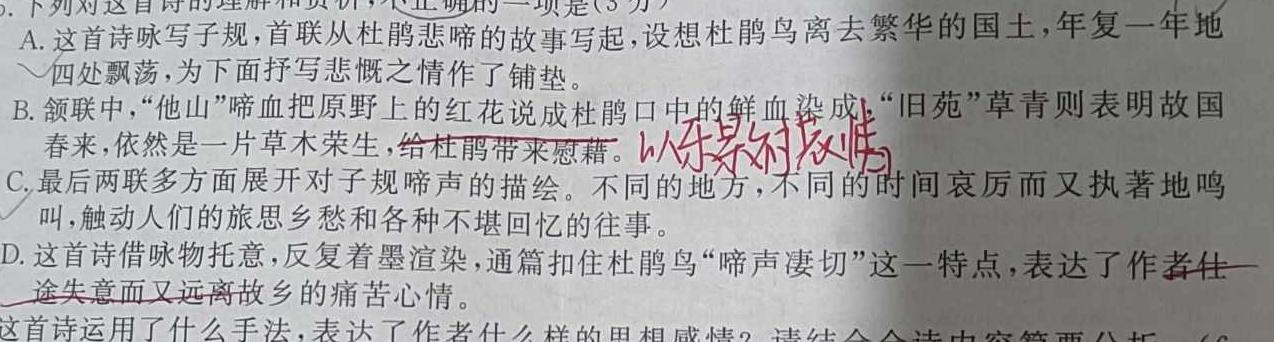 5.下列对这首诗的理解和赏析,不正确的一项是(3分)
A.这首诗咏写子规,首联从杜鹃悲啼的故事写起,设想杜鹃鸟离去繁华的国土,年复一年地
四处飘荡,为下面抒写悲慨之情作了铺垫。
B.颔联中,“他山”啼血把原野上的红花说成杜鹃口中的鲜血染成,“旧苑”草青则表明故国
春来,依然是一片草木荣生,给杜鹃带来慰藉。以乐景衬哀情
C.最后两联多方面展开对子规啼声的描绘。不同的地方,不同的时间哀厉而又执著地鸣
叫,触动人们的旅思乡愁和各种不堪回忆的往事。
D.这首诗借咏物托意,反复着墨渲染,通篇扣住杜鹃鸟“啼声凄切”这一特点,表达了作者仕
途失意而又远离故乡的痛苦心情。
这首诗运用了什么手法,表达了作者什么样的思想感情?请结合全诗内容简要分析。(6